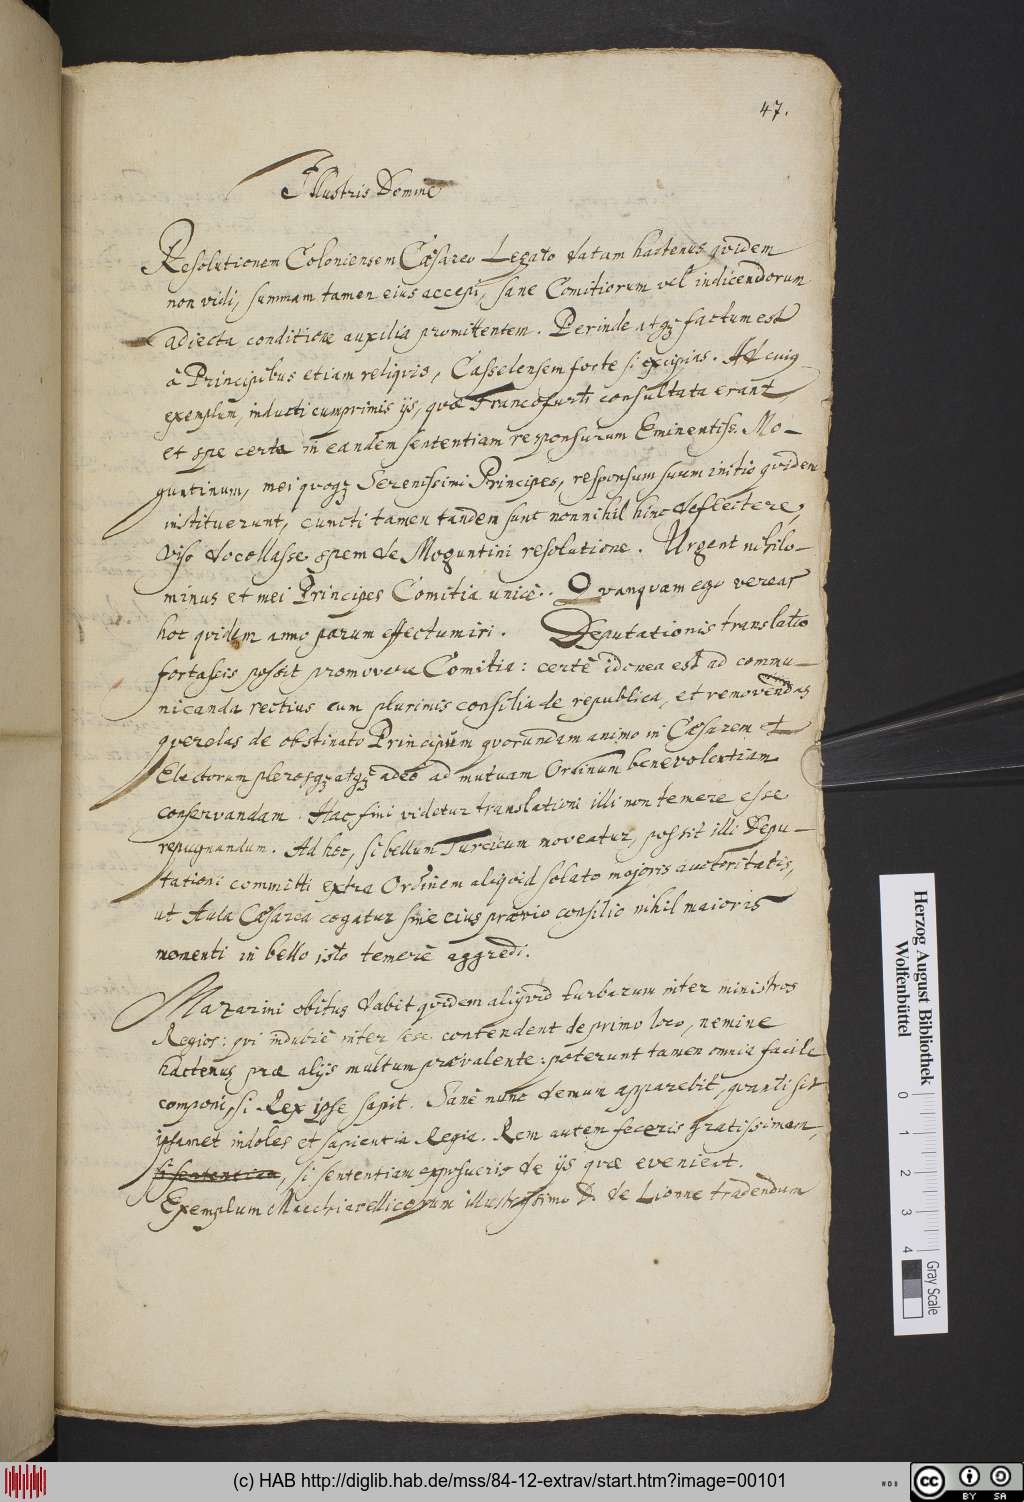 47.
Illustris Domine
Resolutionem Coloniensem Cæsareo Legato datam hactenus quidem
non vidi, summam tamen eius accepi, sane Comitiorum vel indicendorum
adiecta conditione auxilia promittentem. Perinde atqz factum est
à Principibus etiam reliquis, Casselensem forte si excipias. Ad cuiq
exemplum, inducti cumprimis ijs, quæ Francofurti consultata erant
et spe certa in eandem sententiam responsurum Eminentiss. Mo-
guntinum, mei quoqz Serenissimi Principes, responsum suum initio quidem
instituerunt, cuncti tamen tandem sunt nonnihil hinc deflectere,
viso Moguntini resolutione. Urgent nihilo-
minus et mei Principes Comitia unicè. Quanquam ego verear
hoc quidem anno parum effectum iri. Deputationis translatio
fortassis possit promovere Comitia: certè idonea est ad commu-
nicanda rectius cum plurimis consilia de republica, et removendas
querelas de obstinato Principum quorundam animo in Cæsarem et
Electorum plerosqz atqz adeò ad mutuam Ordinum benevolentiam
conservandam. Hac fini videtur translationi illi non temere esse
repugnandum. Ad hoc, si bellum Turcicum moveatur, possit illi Depu-
tationi committi extra Ordinem aliquid solato majoris auctoritatis,
ut Aula Cæsarea cogatur sine eius prævio consilio nihil maioris
momenti in bello isto temerè aggredi.
Mazarini obitus dabit quidem aliquid turbarum inter ministros
Regios: qui indubiè inter sese contendent de primo loco, nemine
hactenus præ alijs multum prævalente: poterunt tamen omnia facile
componi, si Rex ipse sapit. Sanè nunc demum apparebit, quanti sit
ipsamet indoles et sapientia Regia. Rem autem feceris gratissimam,
si sententiam, si sententiam exposueris de ijs quæ evenient.
Exemplum Macchiavellicorum illustrissimo D. de Lionne tradendum
Herzog August Bibliothek
Wolfenbüttel
0 1 2 3 4
Gray Scale
(c) HAB http://diglib.hab.de/mss/84-12-extrav/start.htm?image=00101
WDB
cc BY SA